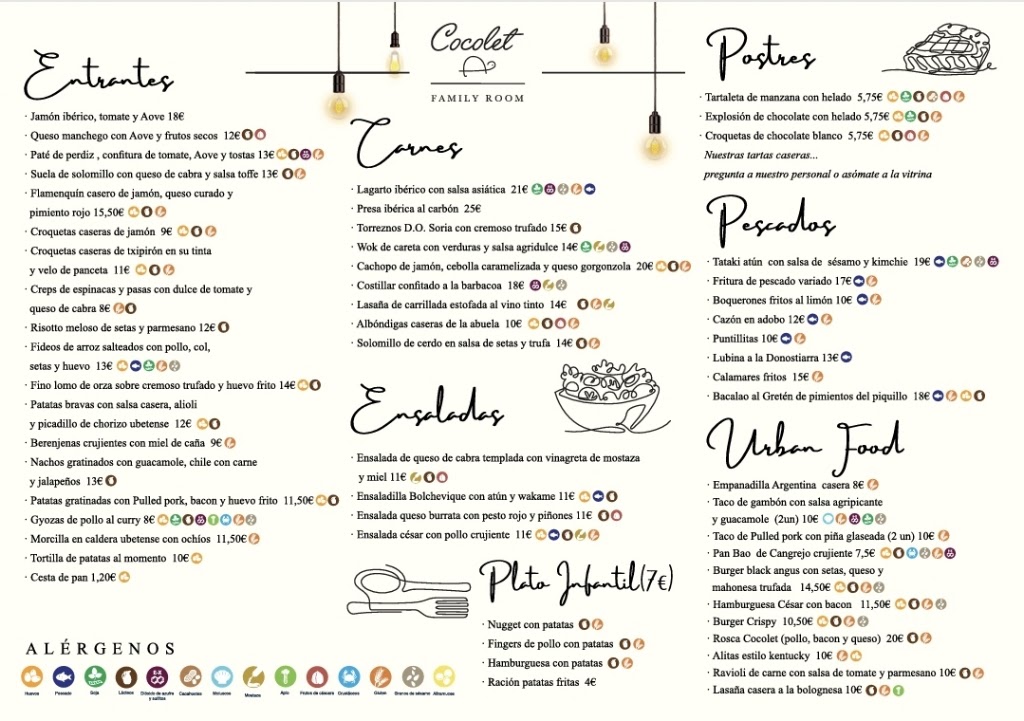 Cocolet
FAMILY ROOM
Entrantes
· Jamón ibérico, tomate y Aove 18€
· Queso manchego con Aove y frutos secos 12€
· Paté de perdiz , confitura de tomate, Aove y tostas 13€
· Suela de solomillo con queso de cabra y salsa toffe 13€
· Flamenquín casero de jamón, queso curado y
pimiento rojo 15,50€
· Croquetas caseras de jamón 9€
· Croquetas caseras de txipirón en su tinta
y velo de panceta 11€
· Creps de espinacas y pasas con dulce de tomate y
queso de cabra 8€
· Risotto meloso de setas y parmesano 12€
· Fideos de arroz salteados con pollo, col,
setas y huevo 13€
· Fino lomo de orza sobre cremoso trufado y huevo frito 14€
· Patatas bravas con salsa casera, alioli
y picadillo de chorizo ubetense 12€
· Berenjenas crujientes con miel de caña 9€
· Nachos gratinados con guacamole, chile con carne
y jalapeños 13€
· Patatas gratinadas con Pulled pork, bacon y huevo frito 11,50€
· Gyozas de pollo al curry 8€
· Morcilla en caldera ubetense con ochíos 11,50€
· Tortilla de patatas al momento 10€
· Cesta de pan 1,20€
ALÉRGENOS
Huevos
Pescado
Soja
Lácteos
Dióxido de azufre
y sulfitos
Cacahuetes
Moluscos
Mostaza
Apio
Frutos de cáscara
Crustáceos
Gluten
Granos de sésamo
Altramuces
Carnes
· Lagarto ibérico con salsa asiática 21€
· Presa ibérica al carbón 25€
· Torreznos D.O. Soria con cremoso trufado 15€
· Wok de careta con verduras y salsa agridulce 14€
· Cachopo de jamón, cebolla caramelizada y queso gorgonzola 20€
· Costillar confitado a la barbacoa 18€
· Lasaña de carrillada estofada al vino tinto 14€
· Albóndigas caseras de la abuela 10€
· Solomillo de cerdo en salsa de setas y trufa 14€
Ensaladas
· Ensalada de queso de cabra templada con vinagreta de mostaza
y miel 11€
· Ensaladilla Bolchevique con atún y wakame 11€
· Ensalada queso burrata con pesto rojo y piñones 11€
· Ensalada césar con pollo crujiente 11€
Plato Infantil(7€)
· Nugget con patatas
· Fingers de pollo con patatas
· Hamburguesa con patatas
· Ración patatas fritas 4€
Postres
· Tartaleta de manzana con helado 5,75€
· Explosión de chocolate con helado 5,75€
· Croquetas de chocolate blanco 5,75€
Nuestras tartas caseras...
pregunta a nuestro personal o asómate a la vitrina
Pescados
· Tataki atún con salsa de sésamo y kimchie 19€
· Fritura de pescado variado 17€
· Boquerones fritos al limón 10€
· Cazón en adobo 12€
· Puntillitas 10€
· Lubina a la Donostiarra 13€
· Calamares fritos 15€
· Bacalao al Gretén de pimientos del piquillo 18€
Urban Food
· Empanadilla Argentina casera 8€
· Taco de gambón con salsa agripicante
y guacamole (2un) 10€
· Taco de Pulled pork con piña glaseada (2 un) 10€
· Pan Bao de Cangrejo crujiente 7,5€
· Burger black angus con setas, queso y
mahonesa trufada 14,50€
· Hamburguesa César con bacon 11,50€
· Burger Crispy 10,50€
· Rosca Cocolet (pollo, bacon y queso) 20€
· Alitas estilo kentucky 10€
· Ravioli de carne con salsa de tomate y parmesano 10€
· Lasaña casera a la bolognesa 10€